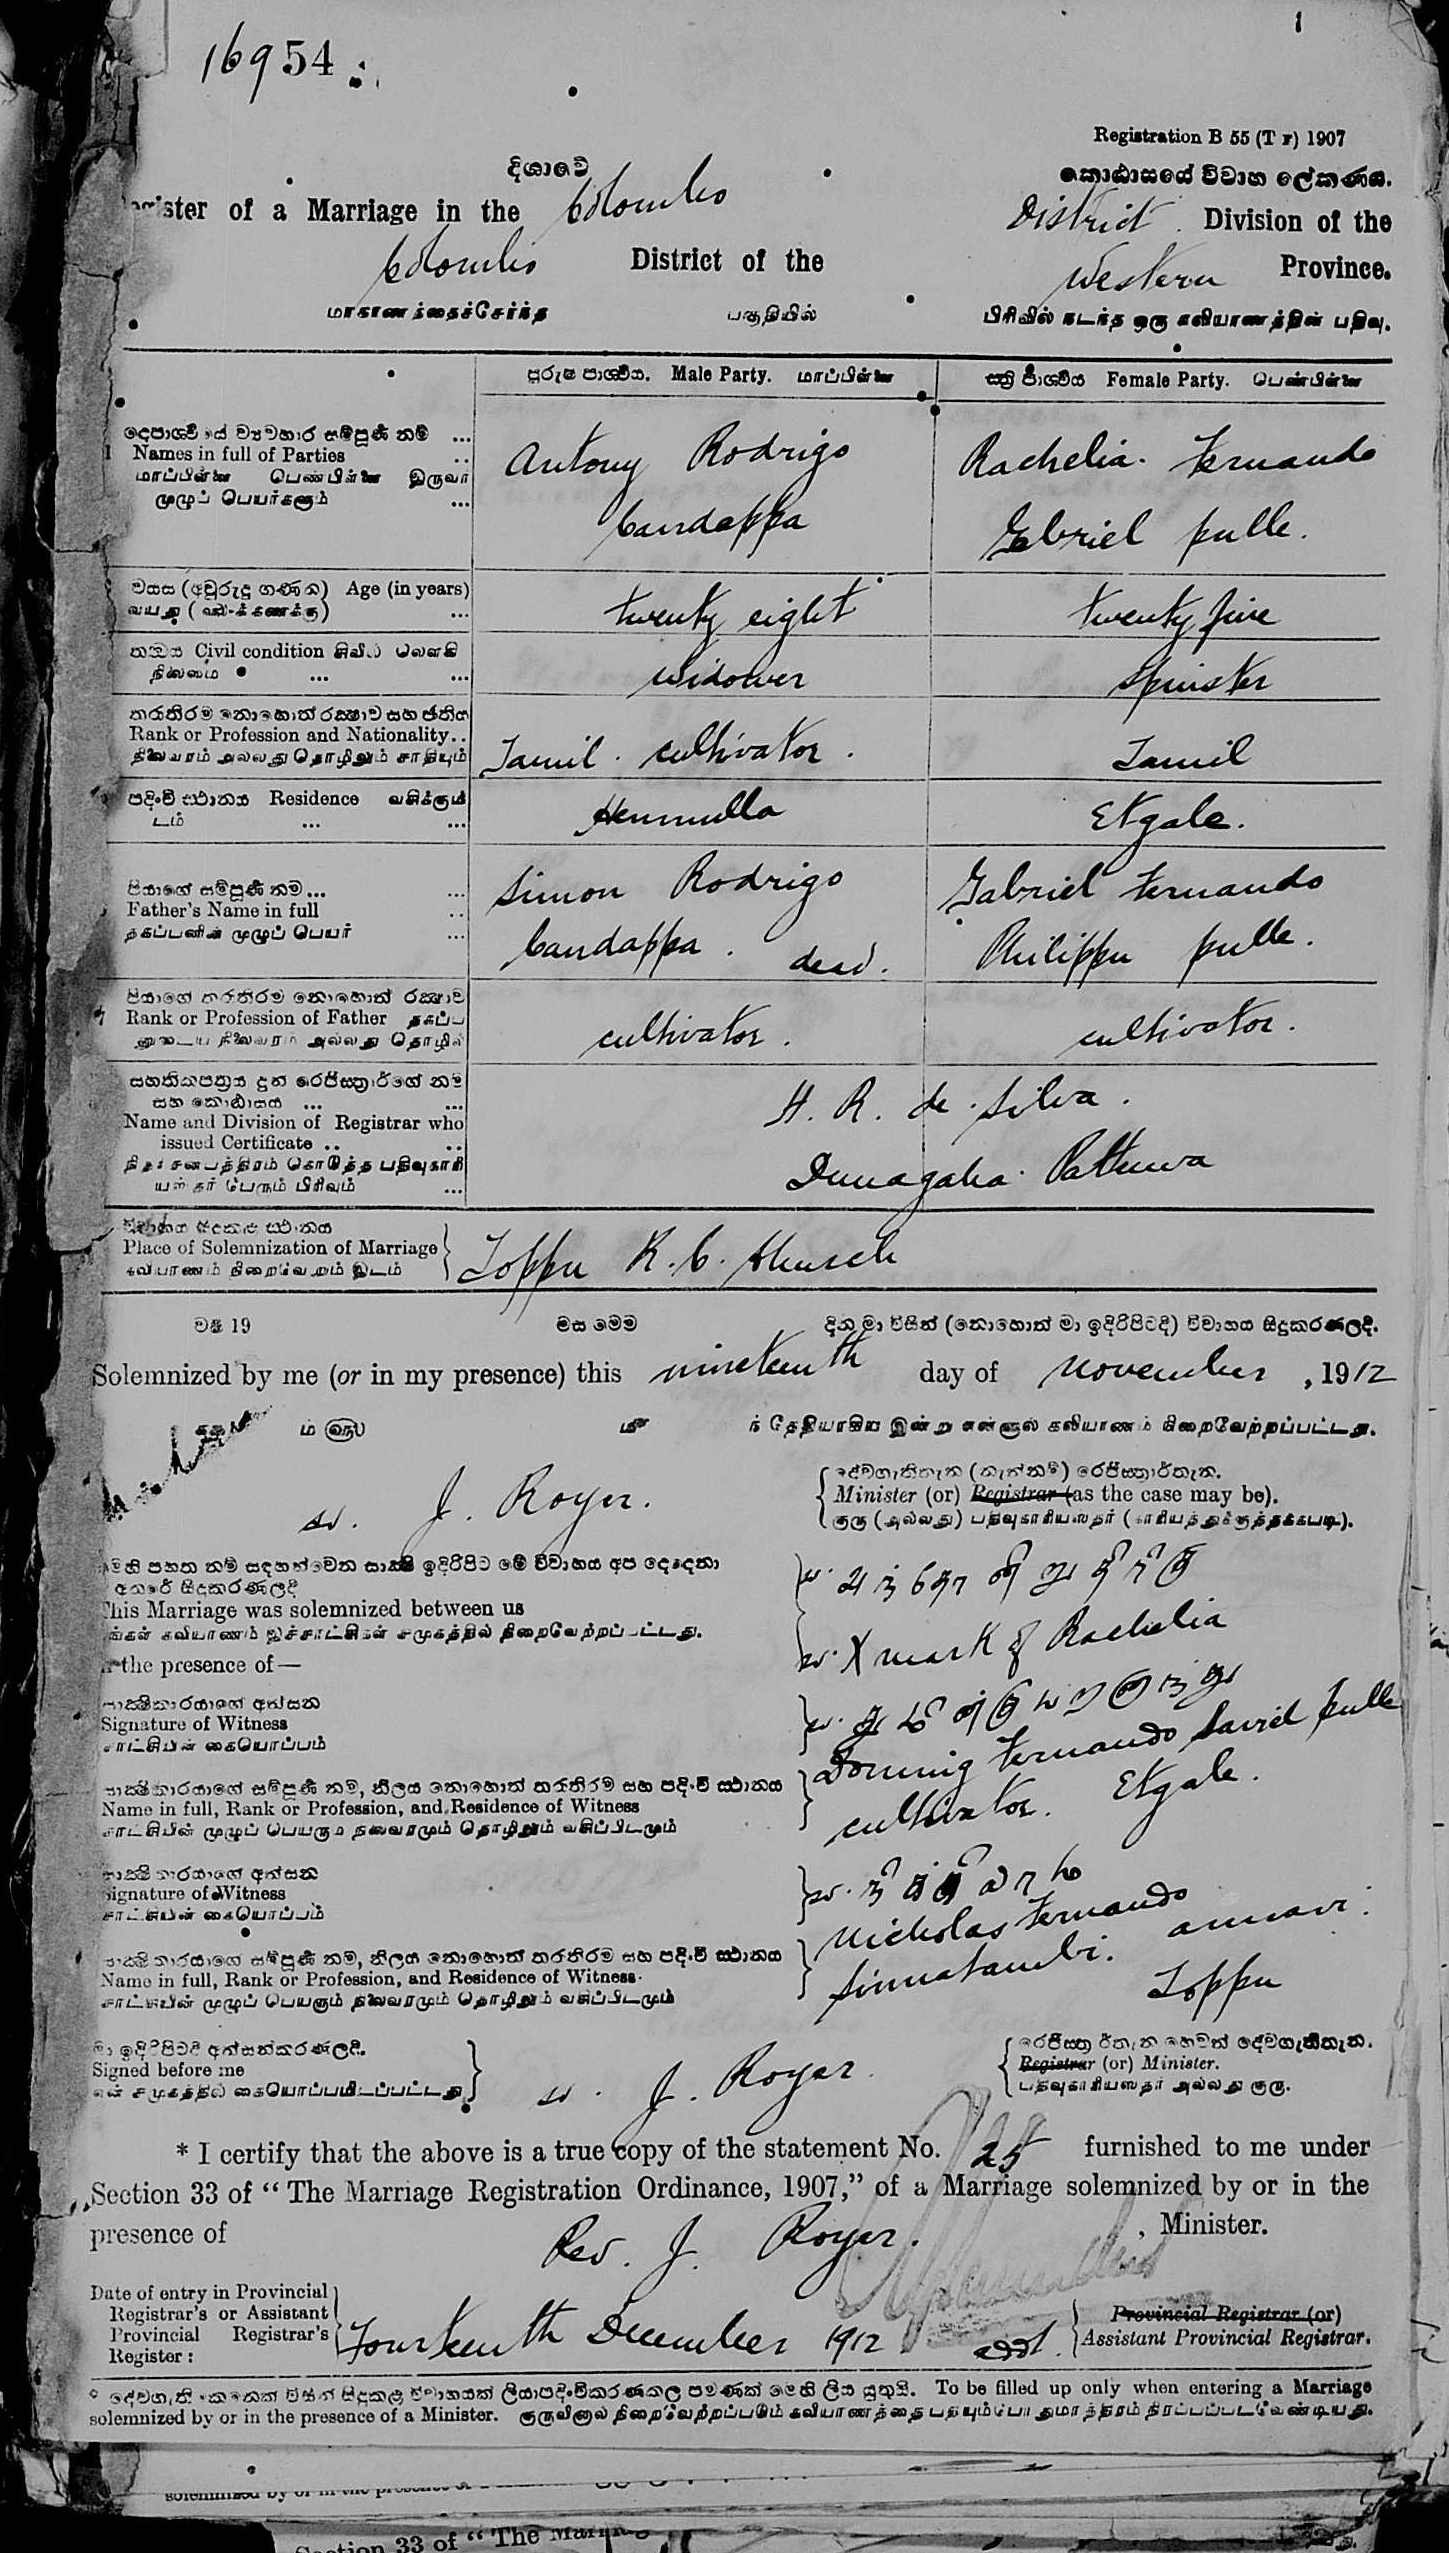 16954
1
Registration B 55 (T F) 1907
දිශාවේ
කොඨාසයේ විවාහ ලේකණය.
Register of a Marriage in the Colombo District Division of the
Colombo District of the Western Province.
மாகாணத்தைச்சேர்ந்த பகுதியில் பிரிவில் நடந்த ஒரு கலியாணத்தின் பதிவு.
පුරුෂ පාර්ශ්වය. Male Party. மாப்பிள்ளை
ස්ත්‍රී පාර්ශ්වය Female Party. பெண்பிள்ளை
දෙපාර්ශ්වයේ ව්‍යවහාර සම්පූර්ණ නම් ...
Names in full of Parties ..
மாப்பிள்ளை பெண்பிள்ளை இருவர்
முழுப் பெயர்களும் ...
Antony Rodrigo
Candappa
Rachelia Fernando
Gabriel pulle.
වයස (අවුරුදු ගණන) Age (in years)
வயது
twenty eight
twenty five
Civil condition
நிலைமை ... ...
Widower
Spinster
තරාතිරම නොහොත් රක්ෂාව සහ ජාතිය
Rank or Profession and Nationality..
நிலைவரம் அல்லது தொழிலும் சாதியும்
Tamil cultivator.
Tamil
පදිංචි ස්ථානය Residence வசிக்கும்
டம் ... ...
Henmulla
Etgale.
පියාගේ සම්පූර්ණ නම... ...
Father's Name in full ..
தகப்பனின் முழுப் பெயர் ...
Simon Rodrigo
Candappa. dead.
Gabriel Fernando
Philippu pulle.
පියාගේ තරාතිරම නොහොත් රක්ෂාව
Rank or Profession of Father தகப்ப
னுடைய நிலைவரம் அல்லது தொழில்
cultivator.
cultivator.
සහතිකපත්‍රය දුන් රෙජිස්ත්‍රාර්ගේ නම
සහ කොඨාසය ... ...
Name and Division of Registrar who
issued Certificate .. ..
H. R. de Silva.
Dunagaha Pattuwa
Place of Solemnization of Marriage
கலியாணம் நிறைவேறும் இடம்
Toppu R. C. Church
වර්ෂ 19 මස මෙම දින මා විසින් (නොහොත් මා ඉදිරිපිටදී) විවාහය සිදුකරණලදි.
Solemnized by me (or in my presence) this nineteenth day of November, 1912
ந் தேதியாகிய இன்று என்னால் கலியாணம் நிறைவேற்றப்பட்டது.
J. Royer.
Minister (or) Registrar (as the case may be).
குரு (அல்லது) பதிவுகாரியஸ்தர் (காரியத்துக்குத்தக்கபடி).
මෙහි පහත නම් සඳහන්වෙන සාක්ෂි ඉදිරිපිට මේ විවාහය අප දෙදෙනා
අතරේ සිදුකරණලදි
This Marriage was solemnized between us
எங்கள் கலியாணம் இச்சாட்சிகள் சமுகத்தில் நிறைவேற்றப்பட்டது.
in the presence of—
X mark of Rachelia
සාක්ෂිකාරයාගේ අත්සන
Signature of Witness
சாட்சியின் கையொப்பம்
සාක්ෂිකාරයාගේ සම්පූර්ණ නම, නිලය නොහොත් තරාතිරම සහ පදිංචි ස්ථානය
Name in full, Rank or Profession, and Residence of Witness
சாட்சியின் முழுப் பெயரும் நிலைவரமும் தொழிலும் வசிப்பிடமும்
Fernando pulle
cultivator. Etgale.
සාක්ෂිකාරයාගේ අත්සන
Signature of Witness
சாட்சியின் கையொப்பம்
සාක්ෂිකාරයාගේ සම්පූර්ණ නම, නිලය නොහොත් තරාතිරම සහ පදිංචි ස්ථානය
Name in full, Rank or Profession, and Residence of Witness
சாட்சியின் முழுப் பெயரும் நிலைவரமும் தொழிலும் வசிப்பிடமும்
Nicholas Fernando
Sinnatambi. annavi.
Toppu
මා ඉදිරිපිටදී අත්සන්කරණලදි.
Signed before me
என் சமுகத்தில் கையொப்பமிடப்பட்டது
J. Royer
Registrar (or) Minister.
பதிவுகாரியஸ்தர் அல்லது குரு.
* I certify that the above is a true copy of the statement No. 25 furnished to me under
Section 33 of “The Marriage Registration Ordinance, 1907,” of a Marriage solemnized by or in the
presence of Rev. J. Royer. , Minister.
Date of entry in Provincial
Registrar's or Assistant
Provincial Registrar's
Register :
Fourteenth December 1912
Provincial Registrar (or)
Assistant Provincial Registrar.
To be filled up only when entering a Marriage
solemnized by or in the presence of a Minister. குருவினால் நிறைவேற்றப்படும் கலியாணத்தை பதியும்போதுமாத்திரம் நிரப்பப்படவேண்டியது.
solemnized by or in the presence
Section 33 of “The